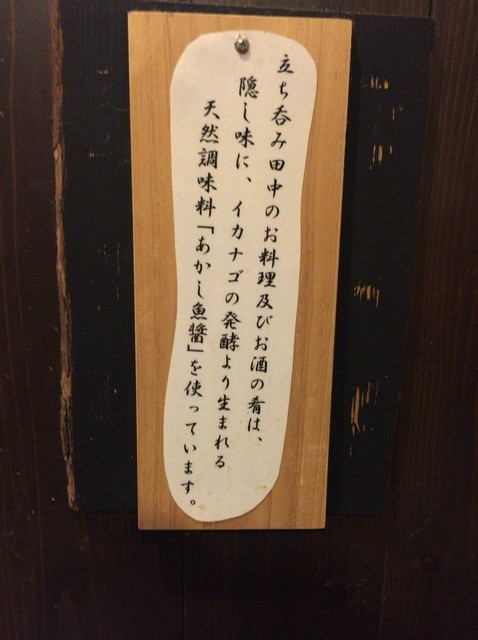 立ち呑み田中のお料理及びお酒の肴は、
隠し味に、イカナゴの発酵より生まれる
天然調味料「あかし魚醤」を使っています。